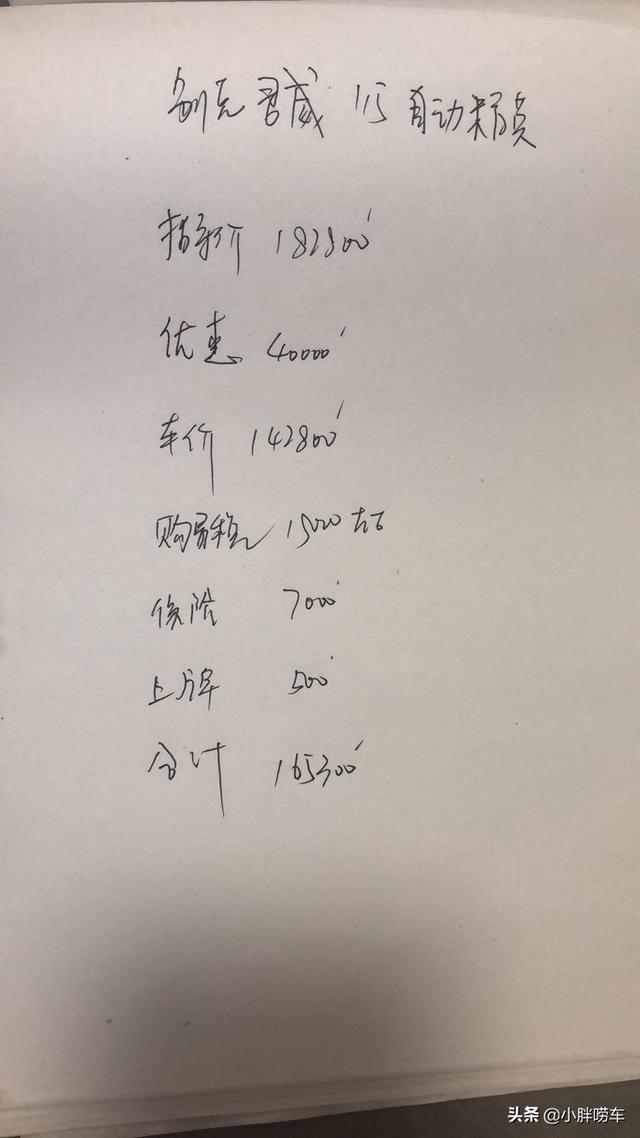 别克君威 1.5 自动
指导价 182800
优惠 40000
车价 142800
购置税 15000左右
保险 7000
上牌 500
合计 165300
头条 @小胖唠车